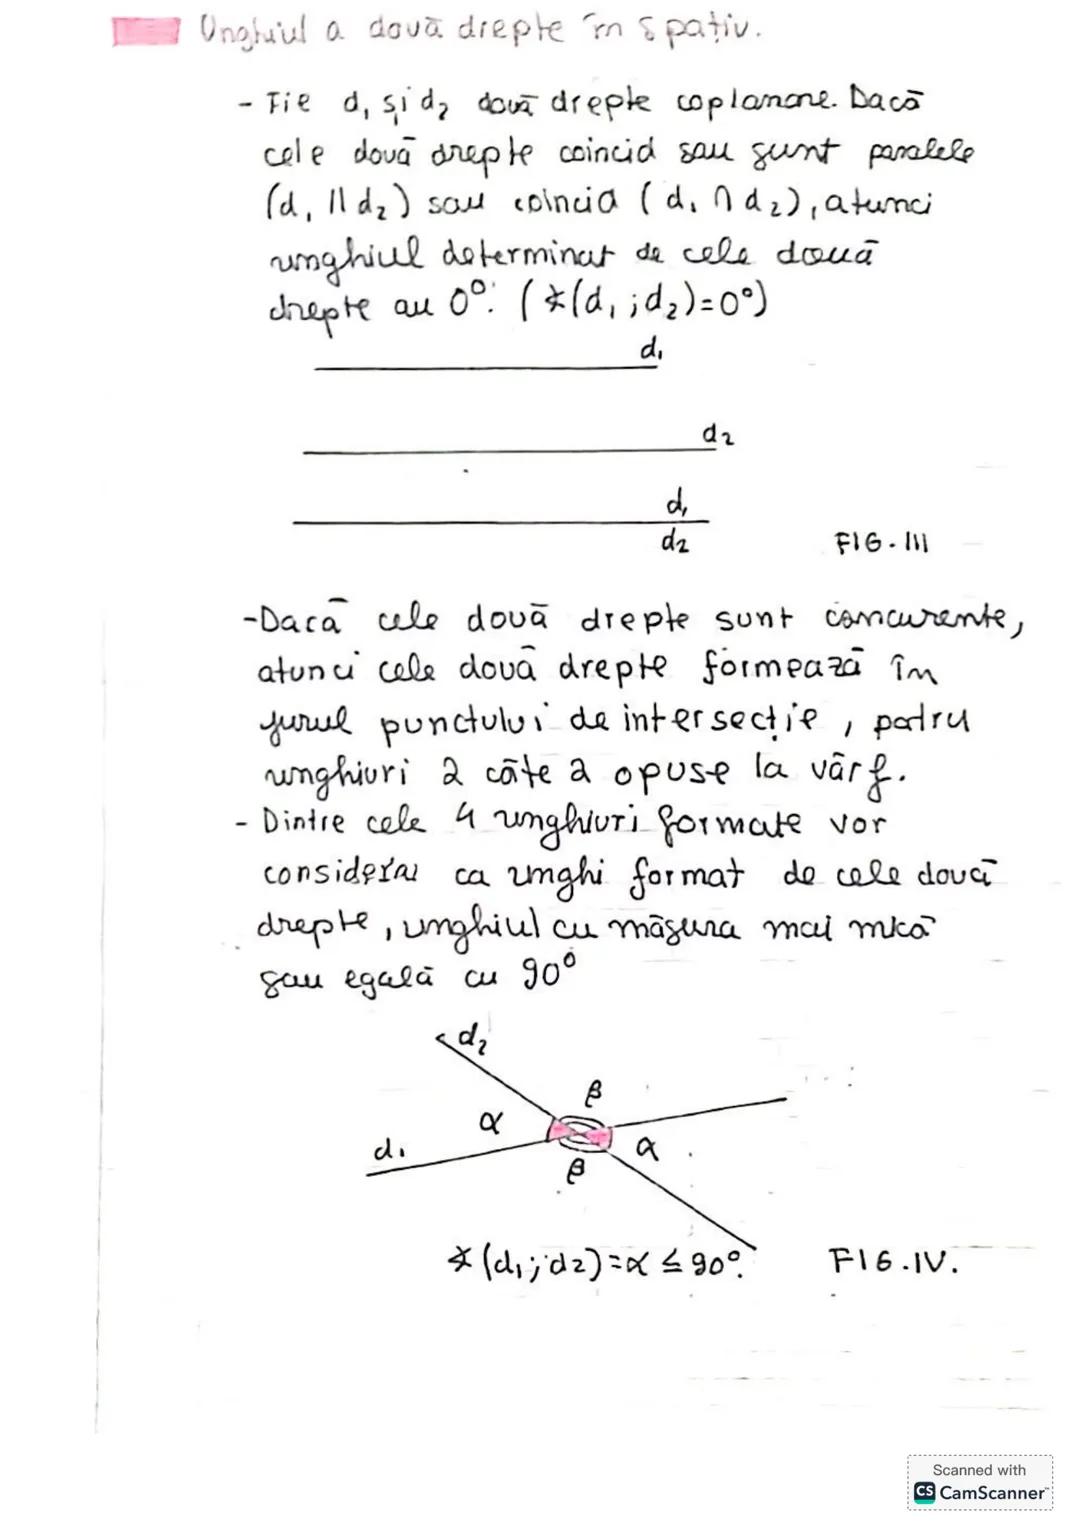 Unghiul a două drepte în spațiu.
- Fie d₁ și d₂ două drepte coplanare. Dacă
cele două drepte coincid sau sunt paralele
(d₁ || d₂) sau coincid (d₁ ∩ d₂), atunci
unghiul determinat de cele două
drepte au 0°. (∢(d₁;d₂)=0°)
d₁
d₂
d₁
d₂
FIG. III
-Dacă cele două drepte sunt concurente,
atunci cele două drepte formează în
jurul punctului de intersecție, patru
unghiuri 2 câte 2 opuse la vârf.
- Dintre cele 4 unghiuri formate vor
considera ca unghi format de cele două
drepte, unghiul cu măsura mai mică
sau egală cu 90°
d₂
β
α
d₁
α
β
∢(d₁;d₂)=α ≤ 90°.
FIG. IV.
Scanned with
CS CamScanner